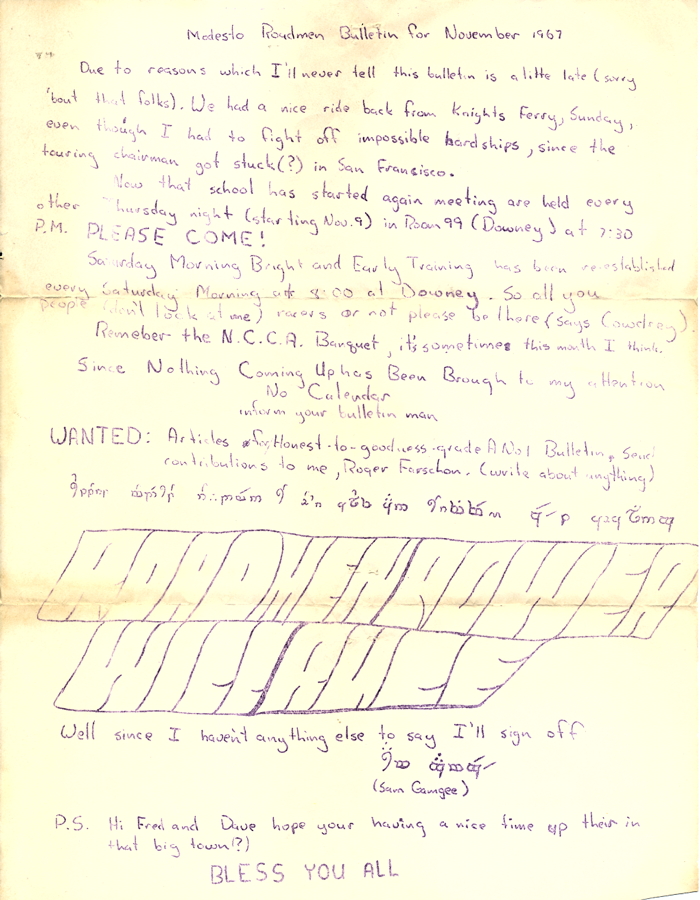 Modesto Roadmen Bulletin for November 1967
Due to reasons which I'll never tell this bulletin is a litte late (sorry
'bout that folks). We had a nice ride back from Knights Ferry, Sunday,
even though I had to fight off impossible hardships, since the
touring chairman got stuck(?) in San Francisco.
Now that school has started again meeting are held every
other Thursday night (starting Nov. 9) in Room 99 (Downey) at 7:30
P.M. PLEASE COME!
Saturday Morning Bright and Early Training has been re-established
every Saturday Morning at 8:00 at Downey. So all you
people (don't look at me) racers or not please be there (says Cowdrey).
Remeber the N.C.C.A. Banquet, it's sometimes this month I think.
Since Nothing Coming Up has Been Brough to my attention
No Calendar
inform your bulletin man
WANTED: Articles for Honest-to-goodness-grade A No 1 Bulletin, Send
contributions to me, Roger Farschon. (write about anything)
ROADMEN POWER
WHEE
Well since I haven't anything else to say I'll sign off
(Sam Gamgee)
P.S. Hi Fred and Dave hope your having a nice time up their in
that big town(?)
BLESS YOU ALL